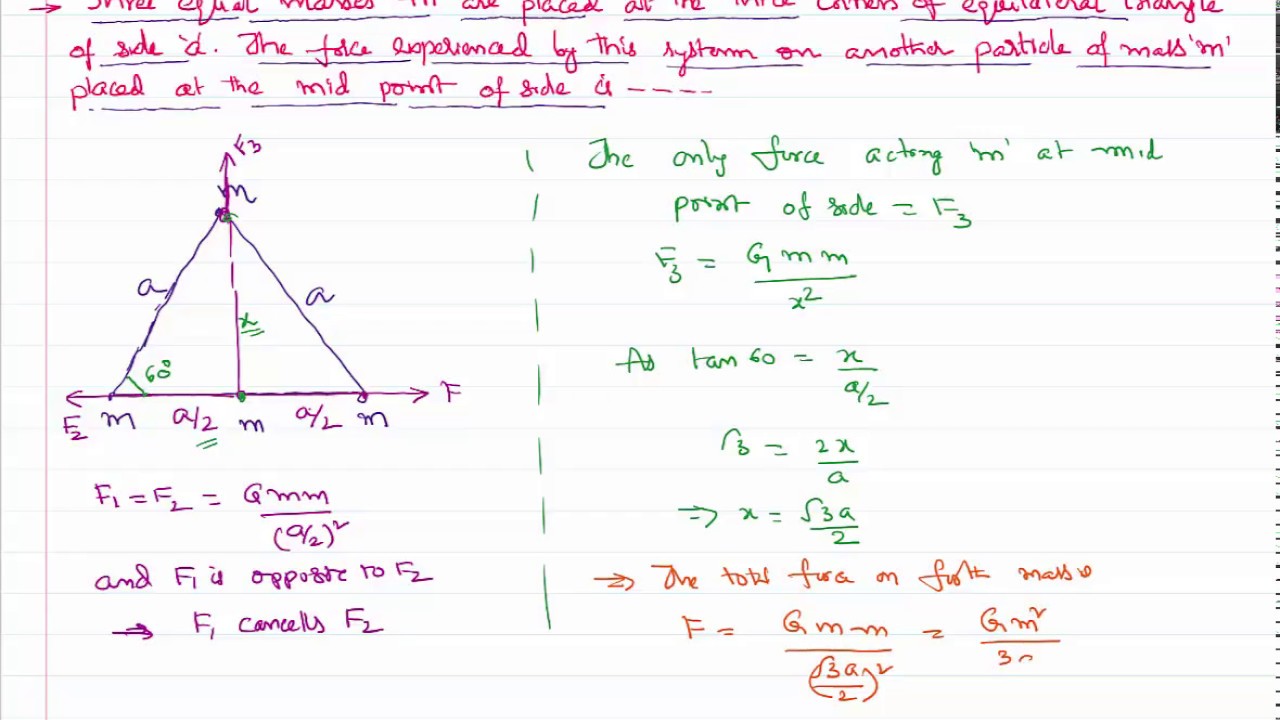 equal masses 'm' are placed at the three corners of equilateral triangle
of side 'a'. The force experienced by this system on another particle of mass 'm'
placed at the mid point of side is ----
F3
m
a
a
x
60°
F2
m
a/2
m
a/2
m
F
F1 = F2 = Gmm/(a/2)²
and F1 is opposite to F2
→ F1 cancells F2
The only force acting 'm' at mid
point of side = F3
F3 = Gmm/x²
As tan 60 = x/(a/2)
√3 = 2x/a
⇒ x = √3a/2
⇒ The total force on mass
F = Gmm/(√3a/2)² = Gm²/3